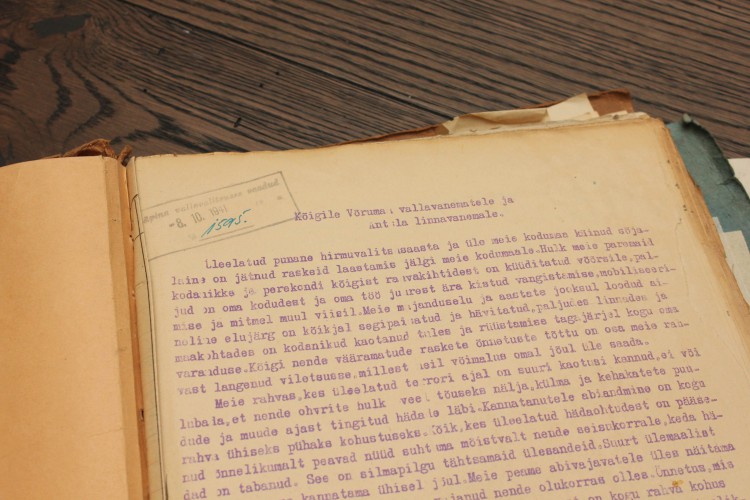 vallavalitsuse saadud
-8. 10. 1941
1595.
Kõigile Võrumaa vallavanematele ja
Antsla linnavanemale.
Üleelatud punane hirmuvalitsusaasta ja üle meie kodumaa käinud sõja-
laine on jätnud raskeid laastamis jälgi meie kodumaale. Hulk meie paremaid
kodanikke ja perekondi kõigist rahvakihtidest on küüditatud võõraile, pal-
jud on oma kodudest ja oma töö juurest ära kistud vangistamise, mobiliseeri-
mise ja mitmel muul viisil. Meie majanduselu ja aastate jooksul loodud ai-
neline elujärg on kõikjal segipaisatud ja hävitatud, paljudes linnades ja
maakohtades on kodanikud kaotanud tules ja rüüstamise tagajärjel kogu oma
varanduse. Kõigi nende vääramatude raskete õnnetuste tõttu on osa meie rah-
vast langenud viletsusse, millest neil võimalus omal jõul üle saada.
Meie rahvas, kes üleelatud terrori ajal on suuri kaotusi kannud, ei või
lubada, et nende ohvrite hulk veel tõuseks nälja, külma ja kehakatete puu-
dude ja muude ajast tingitud hädade läbi. Kannatanutele abiandmine on kogu
rahva ühiseks pühaks kohustuseks. Kõik, kes üleelatud hädaohtudest on pääse-
nud õnnelikumalt peavad nüüd suhtuma mõistvalt nende seisukorrale, keda hä-
dad on tabanud. See on silmapilgu tähtsamaid ülesandeid. Suurt ülemaalist
kannatama ühisel jõul. Meie peame abivajavatele üles näitama
nende olukorras olles. Õnnetus, mis
on kogu rahva kohus